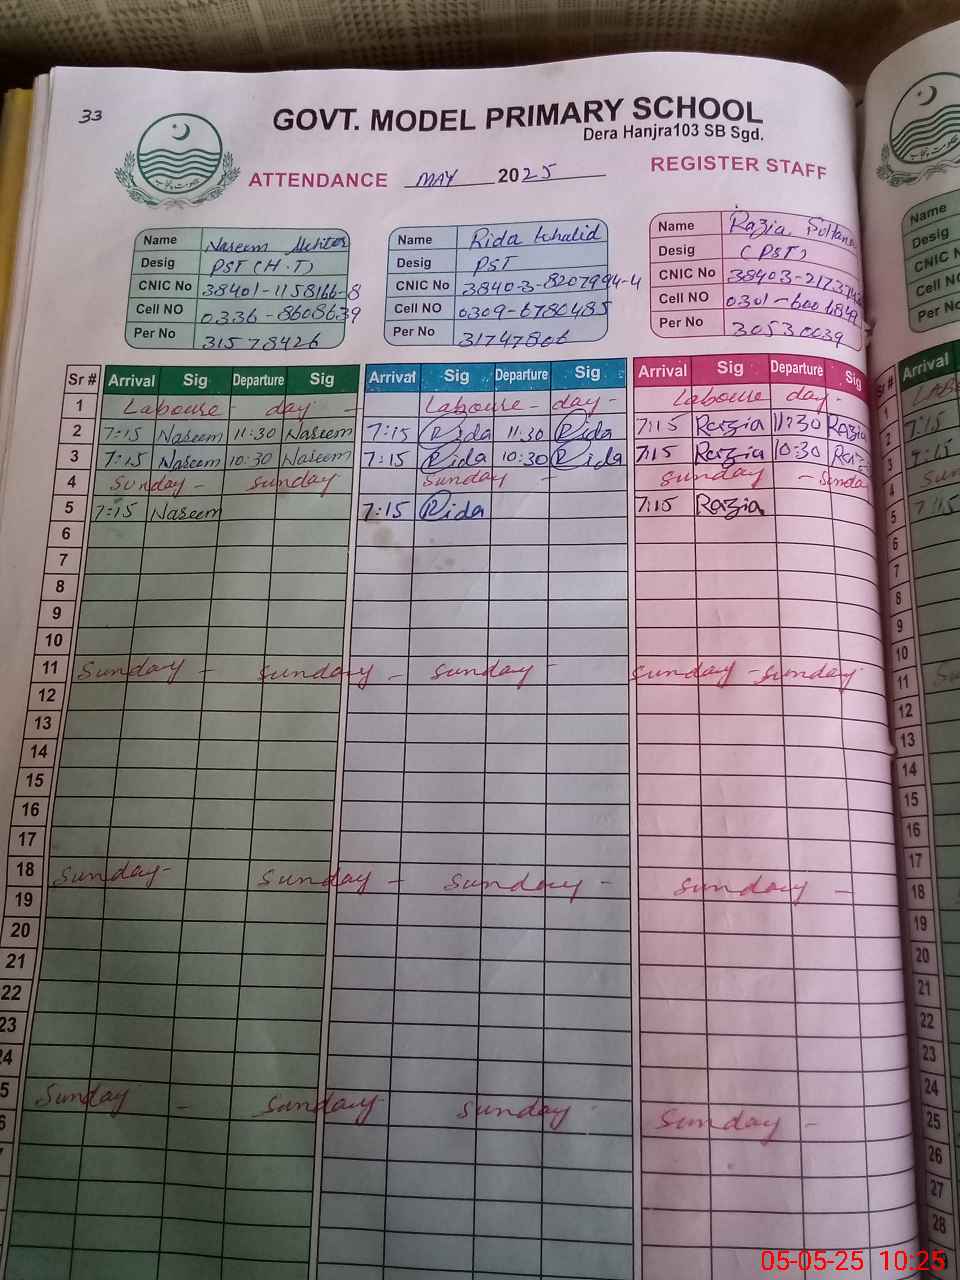 33
GOVT. MODEL PRIMARY SCHOOL
Dera Hanjra103 SB Sgd.
ATTENDANCE MAY 2025 REGISTER STAFF
Name Naseem Akhter Name Rida Khalid Name Razia Sultana
Desig PST (H.T) Desig PST Desig (PST)
CNIC No 38401-1158166-8 CNIC No 38403-8207994-4 CNIC No 38403-
Cell NO 0336-8608639 Cell NO 0309-6780485 Cell NO 0301-6006849
Per No 31578426 Per No 31747806 Per No 30530039
Sr # Arrival Sig Departure Sig Arrival Sig Departure Sig Arrival Sig Departure Sig
1 Labouse - day - Labouse - day - Labouse day -
2 7:15 Naseem 11:30 Naseem 7:15 Rida 11:30 Rida 7:15 Razia 11:30 Razia
3 7:15 Naseem 10:30 Naseem 7:15 Rida 10:30 Rida 7:15 Razia 10:30 Razia
4 Sunday - Sunday Sunday - Sunday - Sunday
5 7:15 Naseem 7:15 Rida 7:15 Razia
6
7
8
9
10
11 Sunday - Sunday - Sunday - Sunday - Sunday
12
13
14
15
16
17
18 Sunday - Sunday - Sunday - Sunday -
19
20
21
22
23
24
5 Sunday - Sunday Sunday - Sunday -
6
Name
Desig
CNIC N
Cell N
Per No
Sr # Arrival
1
2 7:15
3 7:15
4 Sun
5 7:15
6
7
8
9
10
11 Su
12
13
14
15
16
17
18
19
20
21
22
23
24
25
26
27
28
05-05-25 10:25